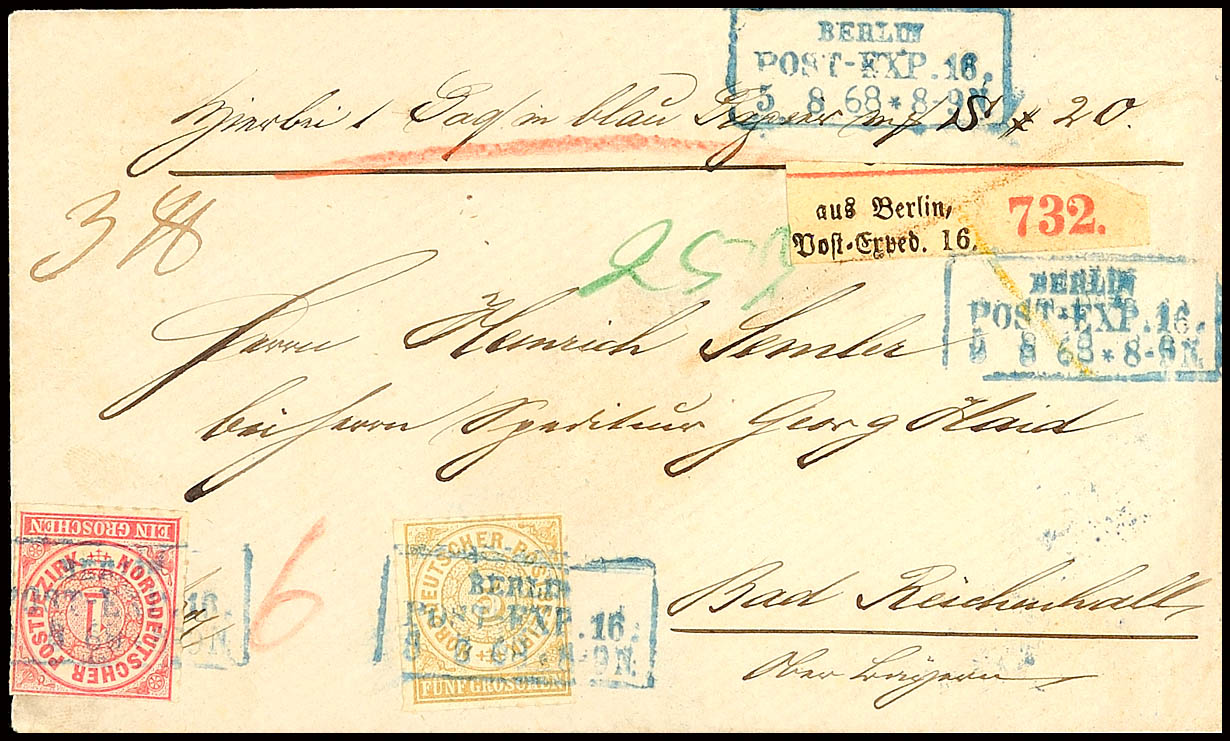 BERLIN
POST-EXP. 16.
5 8 68 * 8-9N.
Hierbei 1 in blau Papier 20.
3 ℔
aus Berlin,
Post-Exped. 16.
732.
BERLIN
POST-EXP. 16.
5 8 68 * 8-9N.
Herrn Heinrich Semler
bei Herrn Spediteur Georg Haid
EIN GROSCHEN
NORDDEUTSCHER POSTBEZIRK
1
6
NORDDEUTSCHER POSTBEZIRK
FÜNF GROSCHEN
BERLIN
POST-EXP. 16.
5 8 68 * 8-9N.
Bad Reichenhall
Ober Bayern